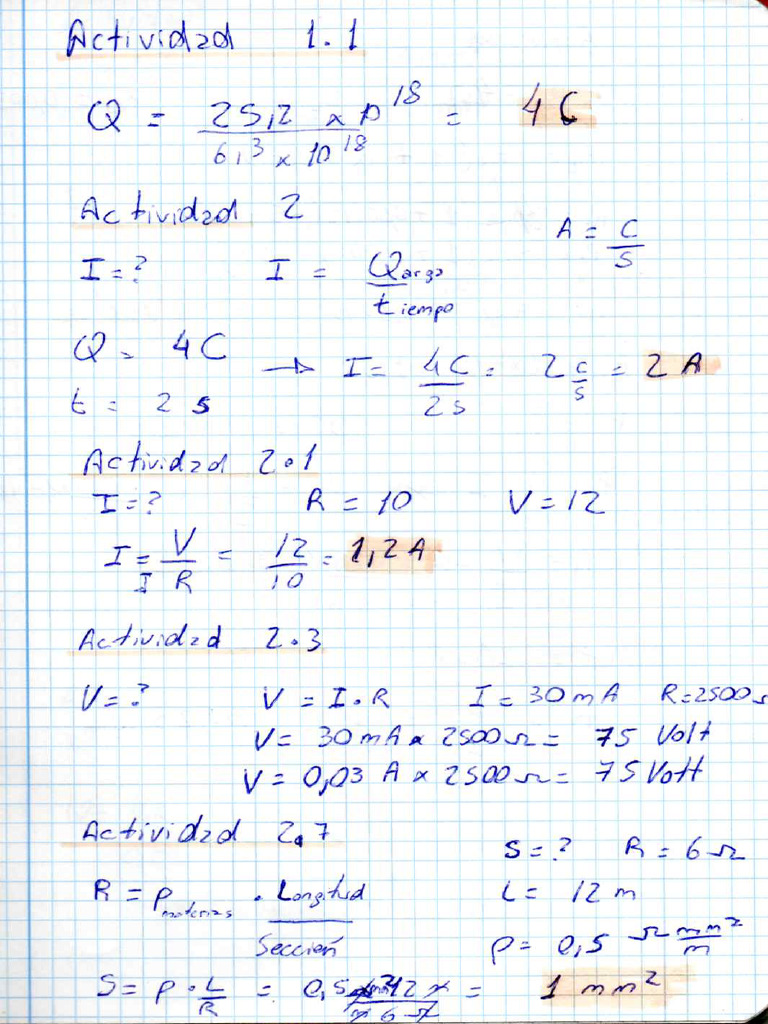 Actividad 1.1
Q = 25,2 x 10^18 / 6,3 x 10^18 = 4 C
Actividad 2
A = C/s
I = ? I = Qarga / tiempo
Q = 4C
t = 2 s
→ I = 4C/2s = 2 C/s = 2 A
Actividad 2.1
I = ? R = 10 V = 12
I = V/R = 12/10 = 1,2 A
I
Actividad 2.3
V = ? V = I . R I = 30 mA R = 2500 Ω
V = 30 mA x 2500 Ω = 75 Volt
V = 0,03 A x 2500 Ω = 75 Volt
Actividad 2.7
S = ? R = 6 Ω
R = ρ . Longitud / Sección
L = 12 m
ρ = 0,5 Ω mm²/m
S = ρ . L/R = 0,5 12 / 6 Ω = 1 mm²